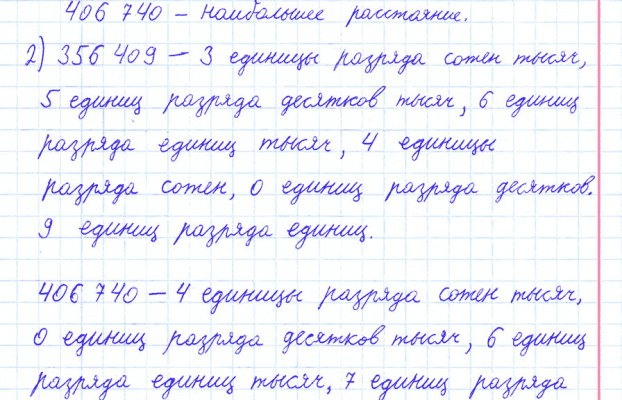 406 740 – наибольшее расстояние.
2) 356 409 – 3 единицы разряда сотен тысяч,
5 единиц разряда десятков тысяч, 6 единиц
разряда единиц тысяч, 4 единицы
разряда сотен, 0 единиц разряда десятков.
9 единиц разряда единиц.
406 740 – 4 единицы разряда сотен тысяч,
0 единиц разряда десятков тысяч, 6 единиц
разряда единиц тысяч, 7 единиц разряда